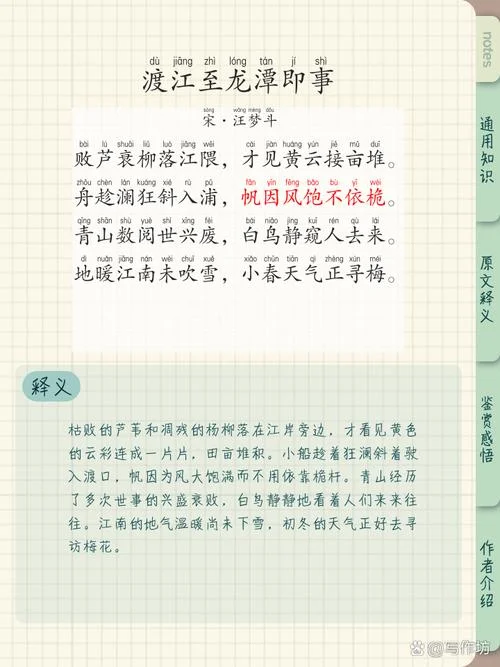 dù jiāng zhì lóng tán jí shì
渡江至龙潭即事
sòng wāng mèng dǒu
宋·汪梦斗
bài lú shuāi liǔ luò jiāng wēi cái jiàn huáng yún jiē mǔ duī
败芦衰柳落江隈，才见黄云接亩堆。
zhōu chèn lán kuáng xié rù pǔ fān yīn fēng bǎo bù yī wéi
舟趁澜狂斜入浦，帆因风饱不依桅。
qīng shān shù yuè shì xīng fèi bái niǎo jìng kuī rén qù lái
青山数阅世兴废，白鸟静窥人去来。
dì nuǎn jiāng nán wèi chuī xuě xiǎo chūn tiān qì zhèng xún méi
地暖江南未吹雪，小春天气正寻梅。
释义
枯败的芦苇和凋残的杨柳落在江岸旁边，才看见黄色
的云彩连成一片片，田亩堆积。小船趁着狂澜斜着驶
入渡口，帆因为风大饱满而不用依靠桅杆。青山经历
了多次世事的兴盛衰败，白鸟静静地看着人们来来往
往。江南的地气温暖尚未下雪，初冬的天气正好去寻
访梅花。
notes
通用知识
原文释义
鉴赏感悟
作者介绍
@写作坊